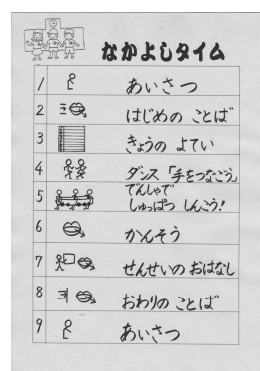 なかよしタイム
1 あいさつ
2 はじめの ことば
3 きょうの よてい
4 ダンス 「手をつなごう」
5 でんしゃで
しゅっぱつ しんこう!
6 かんそう
7 せんせいの おはなし
8 おわりの ことば
9 あいさつ